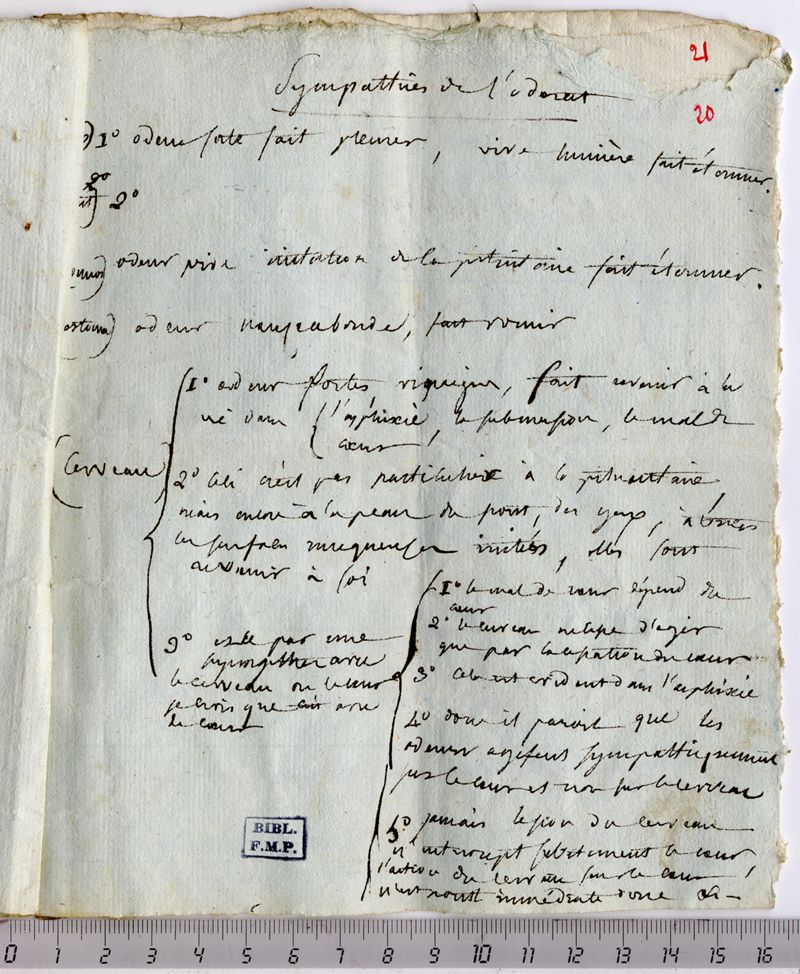 21
20
Sympathies de l'odorat
1° odeur forte fait pleurer, vive lumière fait éternuer.
2°
2°
odeur vive irritation de la pituitaire fait éternuer.
odeur nauseabonde, fait vomir
1° odeur fortes, fait revenir à la
vie dans l'asphixie, la submersion, le mal de
cœur
(Cerveau)
2° cela n'est pas particulier à la pituitaire
mais encore à la peau du front, des yeux,
les surfaces muqueuses irritées, elles font
revenir à soi
3° est ce par une
sympathie avec
le cerveau ou le cœur
je crois que c'est avec
le cœur
1° le mal de cœur dépend du
cœur
2° le cerveau n'agir
que par la cessation du cœur
3° cela est evident dans l'asphixie
4° donc il paroit que les
odeurs agissent sympathiquement
sur le cœur et non sur le cerveau
5° jamais lesion du cerveau
n'interrompt subitement le cœur
l'action du cerveau sur le cœur
n'est point immédiate donc &
BIBL.
F.M.P.
0 1 2 3 4 5 6 7 8 9 10 11 12 13 14 15 16